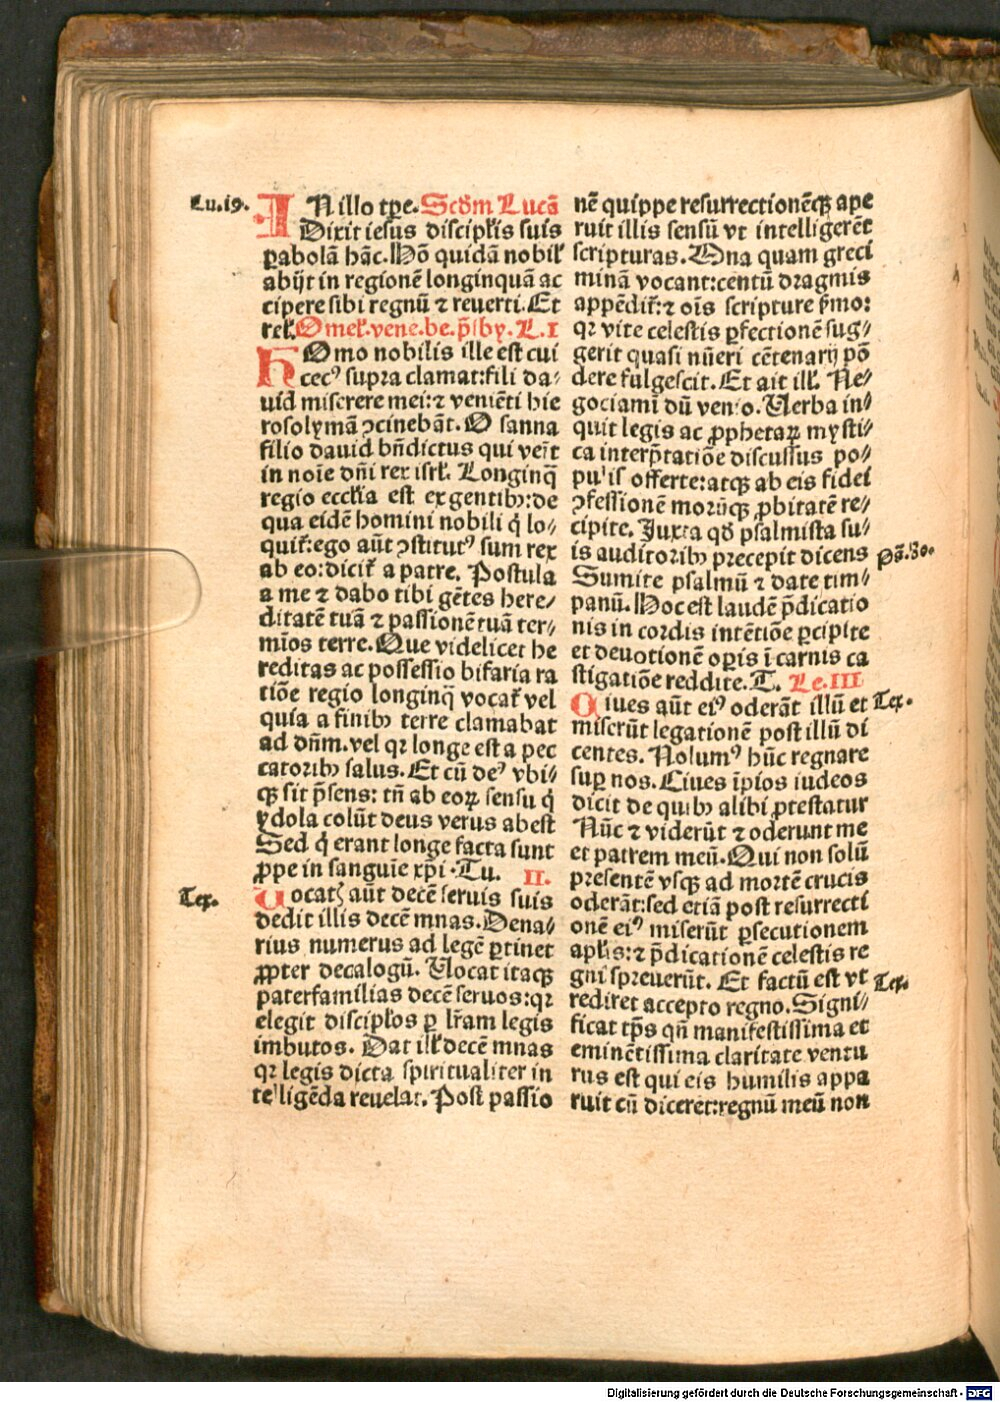 Lu.19.
IN illo tp̄e. Scd̄m Lucā
Dixit iesus discipłis suis
ꝑabolā hāc. Hō quidā nobił
abijt in regionē longinquā ac
cipere sibi regnū ⁊ reuerti. Et
reł. Omeł. vene. be. p̄sby. L. I
HOmo nobilis ille est cui
cec⁹ supra clamat: fili da⸗
uid miserere mei: ⁊ veniēti hie
rosolymā ↄcinebāt. O sanna
filio dauid bn̄dictus qui veīt
in noīe dn̄i rex isrł. Longinq̄
regio eccłia est ex gentibꝫ: de
qua eidē homini nobili q̇ lo⸗
quit᷑: ego aūt ↄstitut⁹ sum rex
ab eo: dicit᷑ a patre. Postula
a me ⁊ dabo tibi gētes here⸗
ditatē tuā ⁊ passionē tuā ter⸗
mīos terre. Que videlicet he
reditas ac possessio bifaria ra
tiōe regio longinq̄ vocat᷑ vel
quia a finibꝫ terre clamabat
ad dn̄m. vel qꝛ longe est a pec
catoribꝫ salus. Et cū de⁹ vbi⸗
qꝫ sit p̄sens: tn̄ ab eoꝝ sensu q̇
ydola colūt deus verus abest
Sed q̇ erant longe facta sunt
ꝓpe in sanguīe xp̄i. Tu. II.
Tex.
Uocatꝭ aūt decē seruis suis
dedit illis decē mnas. Dena⸗
rius numerus ad legē ꝑtinet
ꝓpter decalogū. Vocat itaqꝫ
paterfamilias decē seruos: qꝛ
elegit discipłos ꝑ lr̄am legis
imbutos. Dat ilł decē mnas
qꝛ legis dicta spiritualiter in
telligēda reuelat. Post passio
nē quippe resurrectionēqꝫ ape
ruit illis sensū vt intelligerēt
scripturas. Una quam greci
minā vocant: centū dragmis
appēdit᷑: ⁊ oīs scripture s̄mo:
qꝛ vite celestis ꝑfectionē sug⸗
gerit quasi nūeri cētenarij pō
dere fulgescit. Et ait ilł. Ne⸗
gociamī dū venio. Verba in⸗
quit legis ac ꝓphetaꝝ mysti⸗
ca interp̄tatiōe discussus po⸗
pulis offerte: atqꝫ ab eis fidei
ↄfessionē morūqꝫ ꝓbitatē re⸗
cipite. Juxta qd̄ psalmista su⸗
is auditoribꝫ precepit dicens
pā. 80.
Sumite psalmū ⁊ date tim⸗
panū. Hoc est laudē p̄dicatio
nis in cordis intētiōe ꝑcipite
et deuotionē oꝑis ī carnis ca
stigatiōe reddite. T. Le. III
Ciues aūt ei⁹ oderāt illū et
Tex.
miserūt legationē post illū di
centes. Nolum⁹ hūc regnare
suꝑ nos. Ciues īpios iudeos
dicit de quibꝫ alibi ꝓtestatur
Nūc ⁊ viderūt ⁊ oderunt me
et patrem meū. Qui non solū
presentē vsqꝫ ad mortē crucis
oderāt: sed etiā post resurrecti
onē ei⁹ miserūt ꝑsecutionem
apłis: ⁊ p̄dicationē celestis re
gni spreuerūt. Et factū est vt
Tex.
rediret accepto regno. Signi⸗
ficat tp̄s qn̄ manifestissima et
eminētissima claritate ventu
rus est qui eis humilis appa
ruit cū diceret: regnū meū non
Digitalisierung gefördert durch die Deutsche Forschungsgemeinschaft - DFG